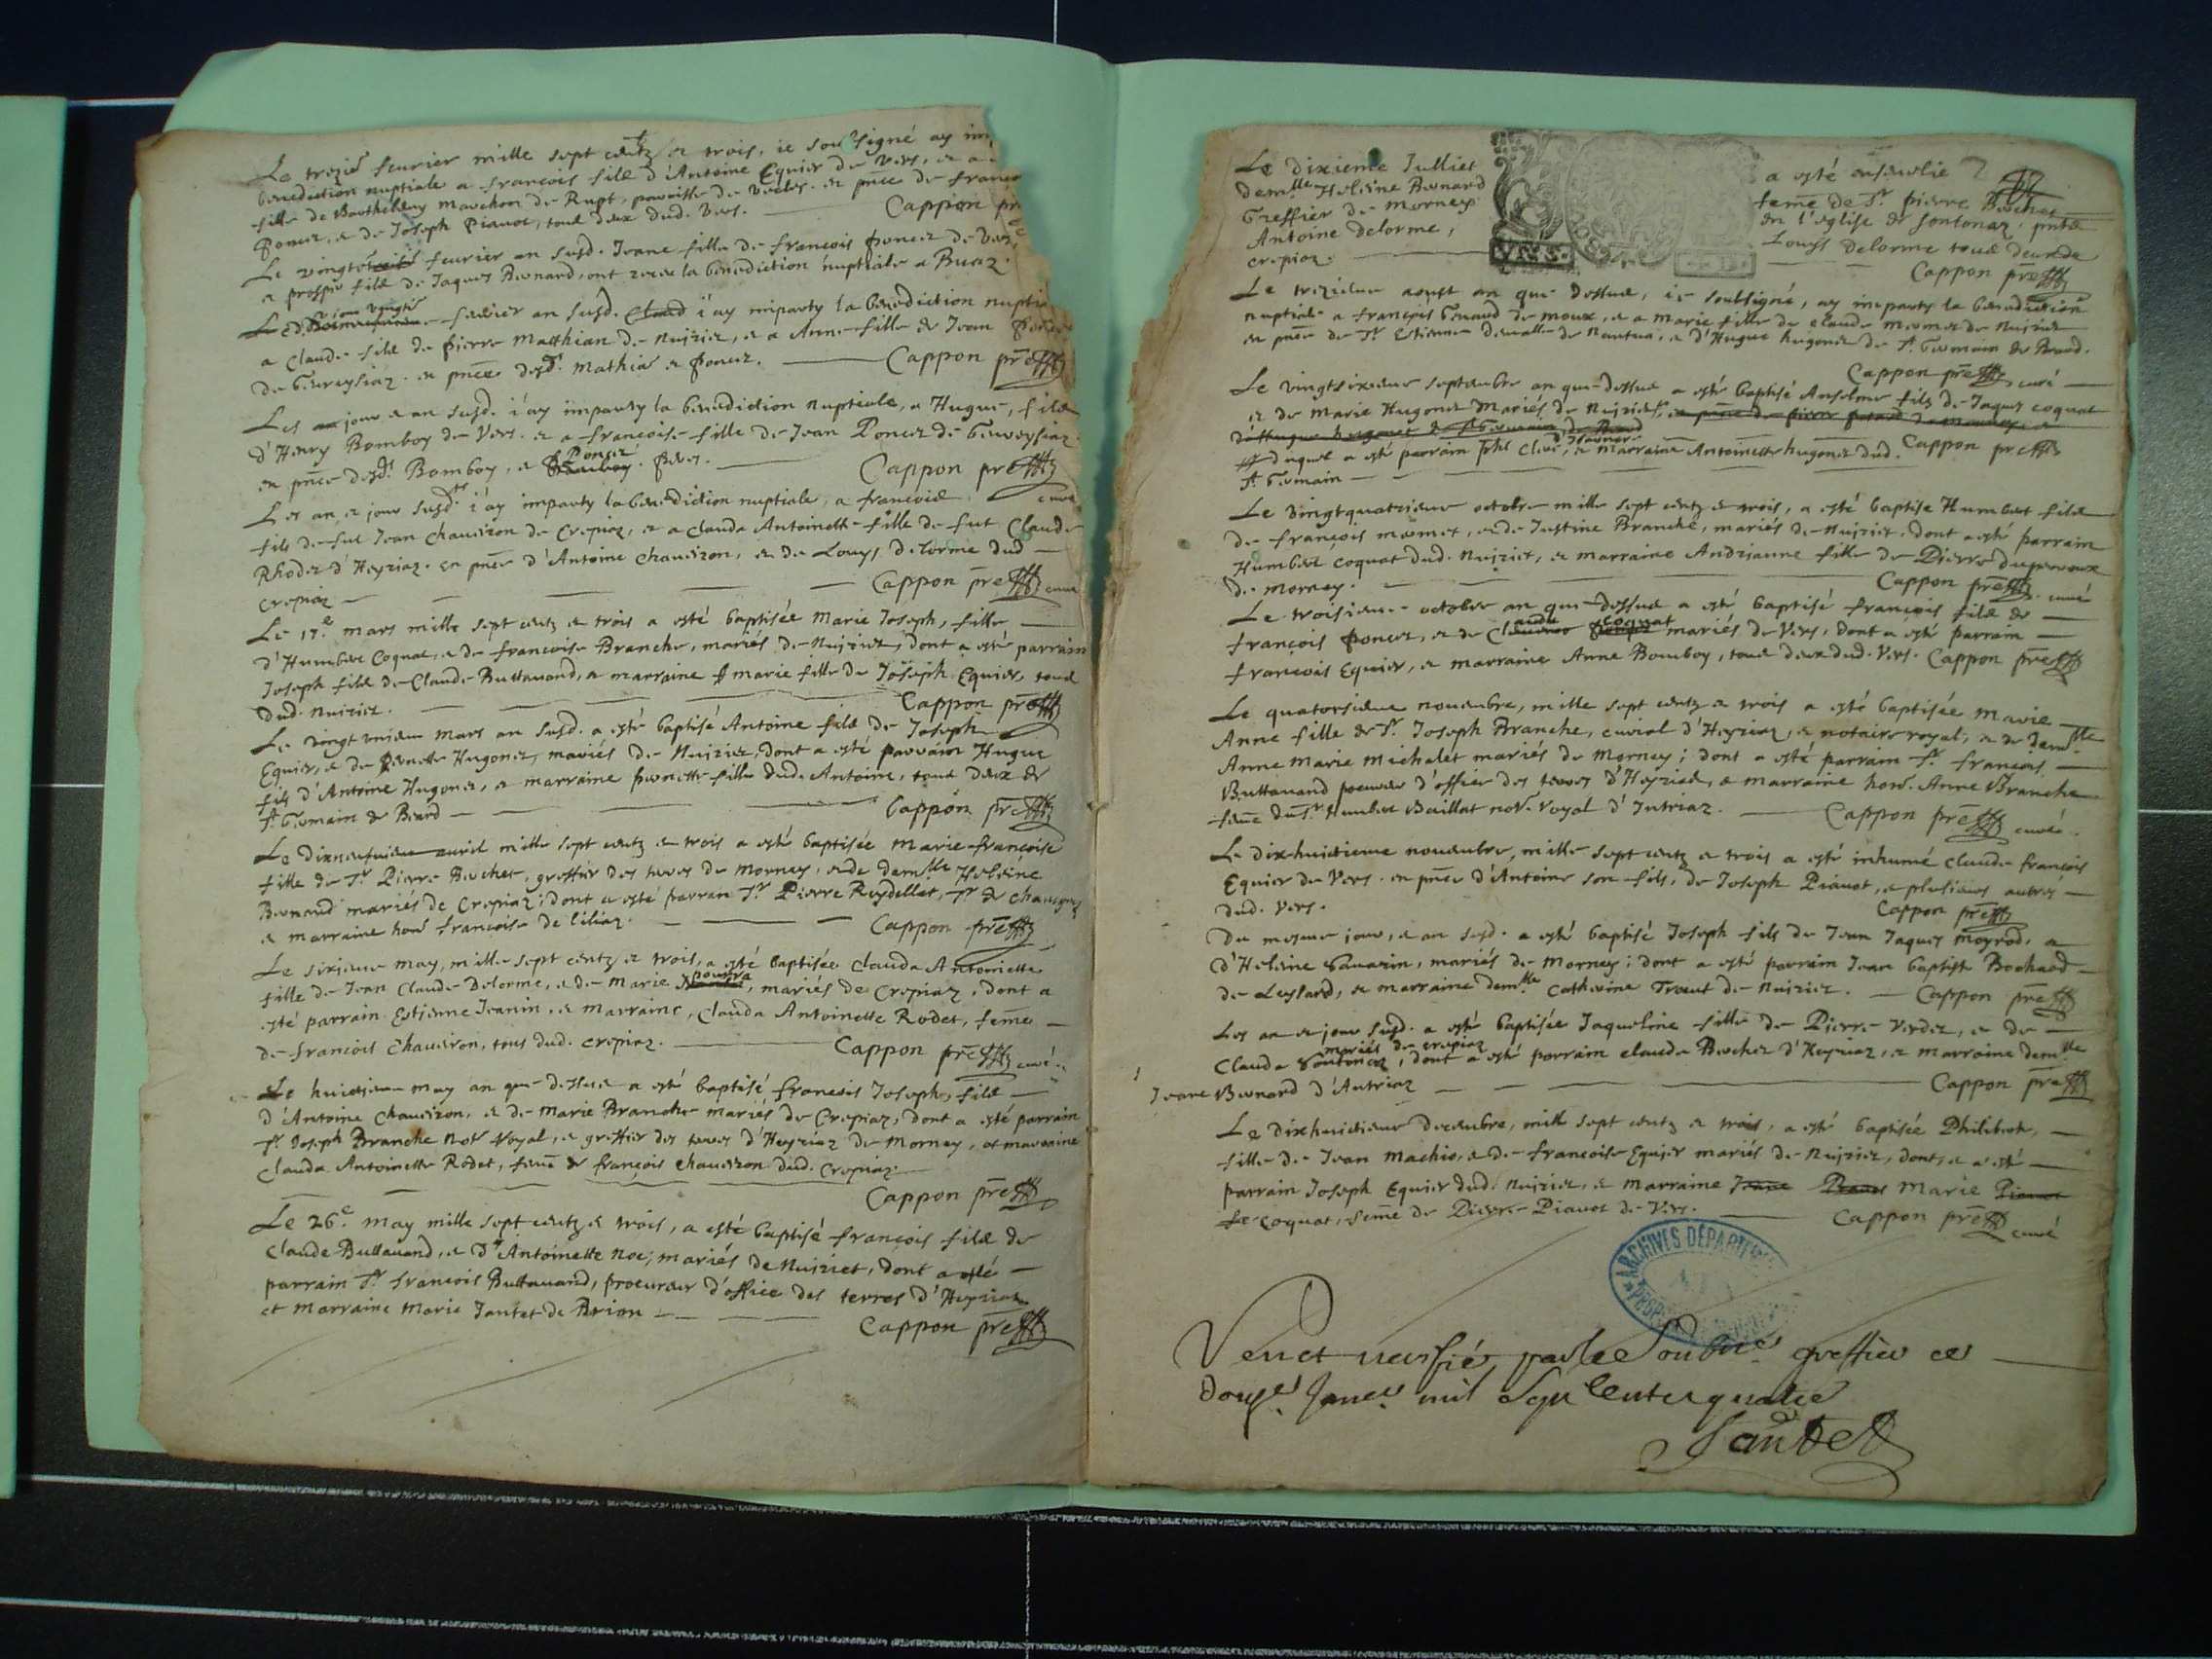 Le trezie feurier mille sept centz & trois, ie soubsigné ay im
benediction nuptiale a françois filz d'Antoine Equier de Vers, & a
fille de Barthelemy marchon de Rupt, paroisse de & en pnce de franco
Poncet, & de Joseph Piauot, tous deux dud. Vers. Cappon pr
Le vingt feurier an susd. Jeane fille de françois Poncet de Vers
& prosper filz de Jaques Bernard, ont receu la benediction nuptiale a Buaz.
Le d. jour vingt feurier an susd. i'ay imparty la benediction nuptia
a Claude filz de Pierre Matthian de Nuiriez, & a Anne fille de Jean Ponc
de Geureysiaz. en pnce desd. Mathia & Poncet. Cappon pre
Les jour & an susd. i'ay imparty la benediction nuptiale, a Hugue, filz
d'Henry Bomboy de Vers. & a françoise fille de Jean Poncet de Geureysiaz.
en pnce desd. Bomboy, & Poncet. Cappon pre
Les an & jour susd. i'ay imparty la benediction nuptiale, a françois curé
fils de fut Jean Chaueron de Crepiaz, & a Clauda Antoinette fille de fut Claude
Rhodet d'Heyriaz. en pnce d'Antoine Chaueron, & de Louys Delorme dud
Crepiaz Cappon pre curé
Le 17e. mars mille sept centz & trois a esté baptisée Marie Joseph, fille
d'Humbert Coquat, & de françoise Branche, mariés de Nuiriez, dont a esté parrain
Joseph filz de Claude Buttauand, & marraine marie fille de Joseph Equier, tous
dud. Nuiriez. Cappon pre
Le vingt unieme mars an susd. a esté baptisé Antoine filz de Joseph
Equier, & de Pernette Hugonet, mariés de Nuiriez, dont a esté parrain Hugue
fils d'Antoine Hugonet, & marraine pernette fille dud. Antoine, tous deux de
St. Germain de Beard Cappon pre
Le dixneufuieme auril mille sept centz & trois a esté baptisée Marie françoise
fille de Sr. Pierre Berchet, greffier des terres de Morney, & de demlle Heleine
Bernard mariés de Crepiaz; dont a esté parrain Sr. Pierre Reydellet, Sr. de
& marraine honê françoise de liliaz. Cappon pre
Le sixieme may, mille sept centz & trois, a esté baptisée Clauda Antoinette
fille de Jean Claude Delorme, & de Marie, mariés de Crepiaz, dont a
esté parrain Estienne Jeanin, & marraine, Clauda Antoinette Rodet, feme
de françois Chaueron, tous dud. Crepiaz. Cappon pre curé
Le huictieme may an que dessus a esté baptisé françois Joseph, filz
d'Antoine Chaueron, & de Marie Branche mariés de Crepiaz, dont a esté parrain
Sr. Joseph Branche Notr. Royal, & greffier des terres d'Heyriaz de Morney, et marraine
Clauda Antoinette Rodet, feme de françois Chaueron dud. Crepiaz.
Cappon pre
Le 26e. may mille sept centz & trois, a esté baptisé françois filz de
Claude Buttauand, & d'Antoinette Noe; mariés de Nuiriet, dont a esté
parrain Sr. françois Buttauand, procureur d'office des terres d'Heyriaz
et marraine Marie Jantet de Brion
Cappon pre
Le dixieme Julliet a esté ensevelie
demlle Heleine Bernard feme de Sr. Pierre Berchet
Greffier de Morney en l'eglise de sontonaz, pnts
Antoine delorme, Louys delorme tous deux de
crepiaz. Cappon pre
Le trezieme aoust an que dessus, ie soubsigné, ay imparty la benediction
nuptiale a françois Genaud de moux, & a marie fille de claude momet de Nuiriet
en pnce de Sr. Estienne Deualle de Nantua, & d'Hugue hugonet de St. Germain de Beard.
Cappon pre curé
Le vingtsixieme septembre an que dessus a esté baptisé Anselme fils de Jaques coquat
& de Marie Hugonet mariés de Nuiriet,
duquel a esté parrain & marraine Antoinette hugonet dud. Cappon pre
St. Germain
Le vingtquatrieme octobre mille sept centz & trois, a esté baptise Humbert filz
de françois momet, & de Justine Branche, mariés de Nuiriet. dont a esté parrain
Humbert coquat dud. Nuiriet, & marraine Andrianne fille de Pierre duperoux
de morney. Cappon pre curé
Le troisieme octobre an que dessus a esté baptisé françois filz de
françois Poncet, & de Claude coquat mariés de Vers, dont a esté parrain
françois Equier, & marraine Anne Bomboy, tous deux dud. Vers. Cappon pre
Le quatorzieme nouembre, mille sept centz & trois a esté baptisée Marie
Anne fille de Sr. Joseph Branche, curial d'Heyriaz, & notaire royal, & de demlle
Anne Marie Michalet mariés de Morney; dont a esté parrain Sr. françois
Buttauand procureur d'office des terres d'Heyriaz, & marraine honê. Anne Branche
feme du Sr. Humbert Baillat notr. royal d'Intriaz. Cappon pre curé
Le dixhuictieme nouembre, mille sept centz & trois a esté inhumé claude françois
Equier de Vers. en pnce d'Antoine son fils, de Joseph Piauot, & plusieurs autres
dud. Vers. Cappon pre
Du mesme jour, & an susd. a esté baptisé Joseph fils de Jean Jaques Moyrod, &
d'Heleine Sauarin, mariés de Morney; dont a esté parrain Jean baptiste Bochard
de Leyssard, & marraine demlle Catherine Trocut de Nuiriez. Cappon pre
Les an & jour susd. a esté baptisée Jaqueline fille de Pierre Verdet, & de
Clauda mariés de crepiaz, dont a esté parrain claude Berchet d'Heyriaz, & marraine demlle
Jeane Bernard d'Antriaz Cappon pre
Le dixhuictieme decembre, mille sept centz & trois, a esté baptisée Philiberte,
fille de Jean Machio, & de françoise Equier mariés de Nuiriez, dont a esté
parrain Joseph Equier dud. Nuiriez, & marraine Marie
coquat, feme de Pierre Piauot de Vers. Cappon pre curé
ARCHIVES DÉPARTEM
Veu et verifié par le soubné greffier ce
douze Janer. mil sept cents quatre